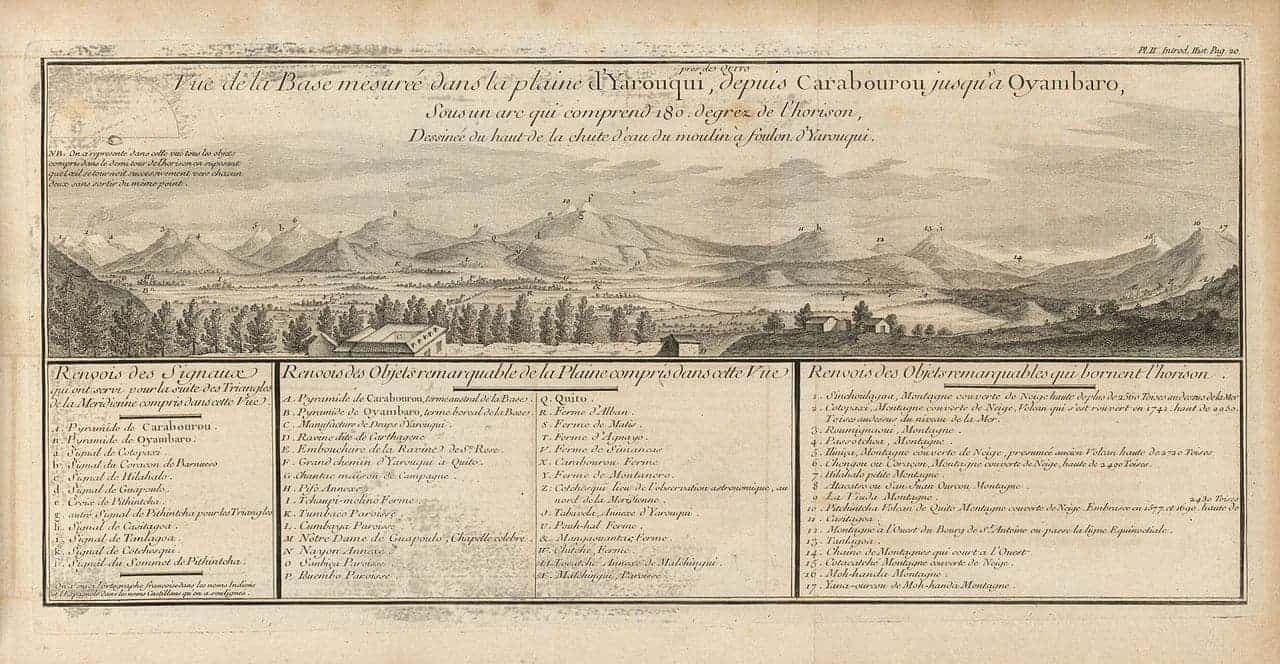 Pl. II. Introd. Hist. Pag. 20
Vue de la Base mesurée dans la plaine d'Yarouqui, près de Quito depuis Carabourou jusqu'à Oyambaro,
Sous un arc qui comprend 180. degrez de l'horison,
Dessinée du haut de la chute d'eau du moulin à foulon d'Yarouqui.
NB. On a représenté dans cette vue tous les objets
compris dans le demi tour de l'horison en suposant
que l'œil se tournoit successivement vers chacun
deux sans sortir du meme point.
Renvois des Signaux
qui ont servi pour la suite des Triangles
de la Meridienne compris dans cette Vue
A. Pyramide de Carabourou
B. Pyramide de Oyambaro.
a. Signal de Cotopaxi
b. Signal du Coraçon de Barnuevo
c. Signal de Hilahalo
d. Signal de Guapoulo
e. Croix de Pithintcha
g. autre Signal de Pithintcha pour les Triangles
h. Signal de Casitagoa
i. Signal de Tanlagoa
k. Signal de Cotchesqui
Signal du Sommet de Pithintcha.
ortographe françoise dans les noms Indiens
et l'Espagnole dans les noms Castillans qu'on a soulignés.
Renvois des Objets remarquable de la Plaine compris dans cette Vue
A. Pyramide de Carabourou, terme austral de la Base
B. Pyramide de Oyambaro, terme boreal de la Base
C. Manufacture de Draps d'Yarouqui.
D. Ravine dite de Carthagene
E. Embouchure de la Ravine de Ste Rose.
F. Grand chemin d'Yarouqui à Quito.
G. Chantac maison de Campagne.
H. Pifo Annexe
I. Tchaupi-molino Ferme
K. Tumbaco Paroisse
L. Cumbaya Paroisse
M. Nôtre Dame de Guapoulo, Chapelle celebre
N. Nayon Annexe
O. Sanbiça Paroisse
P. Puembo Paroisse
Q. Quito.
R. Ferme d'Alban.
S. Ferme de Matis.
T. Ferme d'Agnayo.
V. Ferme de Simancas
X. Carabourou Ferme.
Y. Ferme de Montanero.
Z. Cotchesqui lieu de l'observation astronomique, au
nord de la Meridienne.
J. Tabavela, Annexe d'Yarouqui.
U. Pouh-hal Ferme.
&. Mangaouantac Ferme.
W. Chitché Ferme.
Annexe de Malchingui.
Malchingui, Paroisse
Renvois des Objets remarquables qui bornent l'horison.
1. Sinchoulagoa, Montagne couverte de Neige, haute de plus de 2560 Toises au dessus de la Mer
2. Cotopaxi, Montagne couverte de Neige, Volcan qui s'est rouvert en 1742. haut de 2950.
Toises au dessus du niveau de la Mer.
3. Roumignaoui, Montagne.
4. Passotchoa, Montagne.
5. Iliniça, Montagne couverte de Neige, presumée ancien Volcan haute de 2720 Toises.
6. Chongon ou Coraçon, Montagne couverte de Neige, haute de 2400 Toises.
7. Hilahalo petite Montagne
8. Atacatso ou San Juan Ourcou Montagne.
9. La Viuda Montagne.
2430 Toises
10. Pitchintcha Volcan de Quito Montagne couverte de Neige. Embrasée en 1577. et 1690. haute de
11. Casitagoa
12. Montagne à l'Ouest du Bourg de St. Antoine ou passe la ligne Equinoctiale.
13. Tanlagoa.
14. Chaine de Montagnes qui court à l'Ouest
15. Cotacatché Montagne couverte de Neige.
16. Moh-handa Montagne.
17. Yana-ourcou de Moh-handa Montagne.